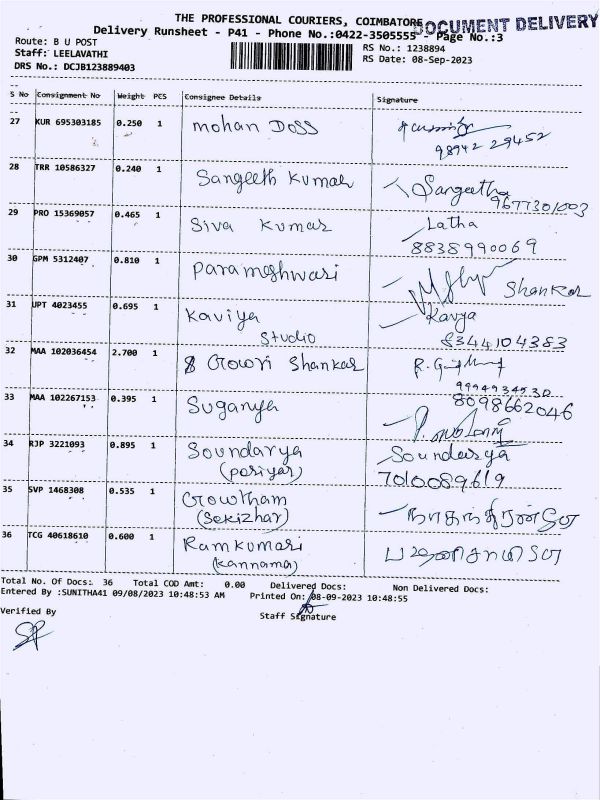 THE PROFESSIONAL COURIERS, COIMBATORE
DOCUMENT DELIVERY
Delivery Runsheet - P41 - Phone No.:0422-3505555 - Page No.:3
Route: B U POST
RS No.: 1238894
Staff: LEELAVATHI
RS Date: 08-Sep-2023
DRS No.: DCJB123889403
S No Consignment No Weight PCS Consignee Details Signature
27 KUR 695303185 0.250 1 mohan Doss
98942 29452
28 TRR 10586327 0.240 1 Sangeeth Kumar Sangeetha
9677301003
29 PRO 15369057 0.465 1 Siva Kumar Latha
8838990069
30 GPM 5312407 0.810 1 Parameshwari Shankar
31 UPT 4023455 0.695 1 Kaviya Kavya
Studio 8344104383
32 MAA 102036454 2.700 1 Gowri Shankar
9994934530
33 MAA 102267153 0.395 1 Suganya 8098662046
34 RJP 3221093 0.895 1 Soundarya Soundarya
(periyar) 7010089619
35 SVP 1468308 0.535 1 Gowtham
(Sekizhar)
36 TCG 40618610 0.600 1 Ramkumari
(kannama)
Total No. Of Docs: 36 Total COD Amt: 0.00 Delivered Docs: Non Delivered Docs:
Entered By :SUNITHA41 09/08/2023 10:48:53 AM Printed On: 08-09-2023 10:48:55
Verified By
Staff Signature